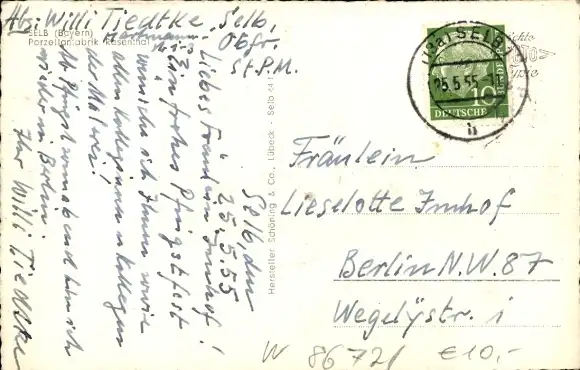 Abs: Willi Tiedtke, Selb,
Hartmann
Obfr.
St.P.M.
SELB (Bayern)
Porzellanfabrik Rosenthal
Selb, den
25.5.55
Liebes Fräulein Imhof!
Ein frohes Pfingstfest
wünsche ich Ihnen sowie
allen Kolleginnen u Kollegen
der Malerei!
Ab Pfingstsonnabend bin ich
wieder in Berlin.
Ihr Willi Tiedtke
Hersteller Schöning & Co., Lübeck · Selb 44
(13a) SELB
25.5.55
b
10
DEUTSCHE
Fräulein
Lieselotte Imhof
Berlin N.W. 87
Wegelystr. 1
W 86721 €10,-